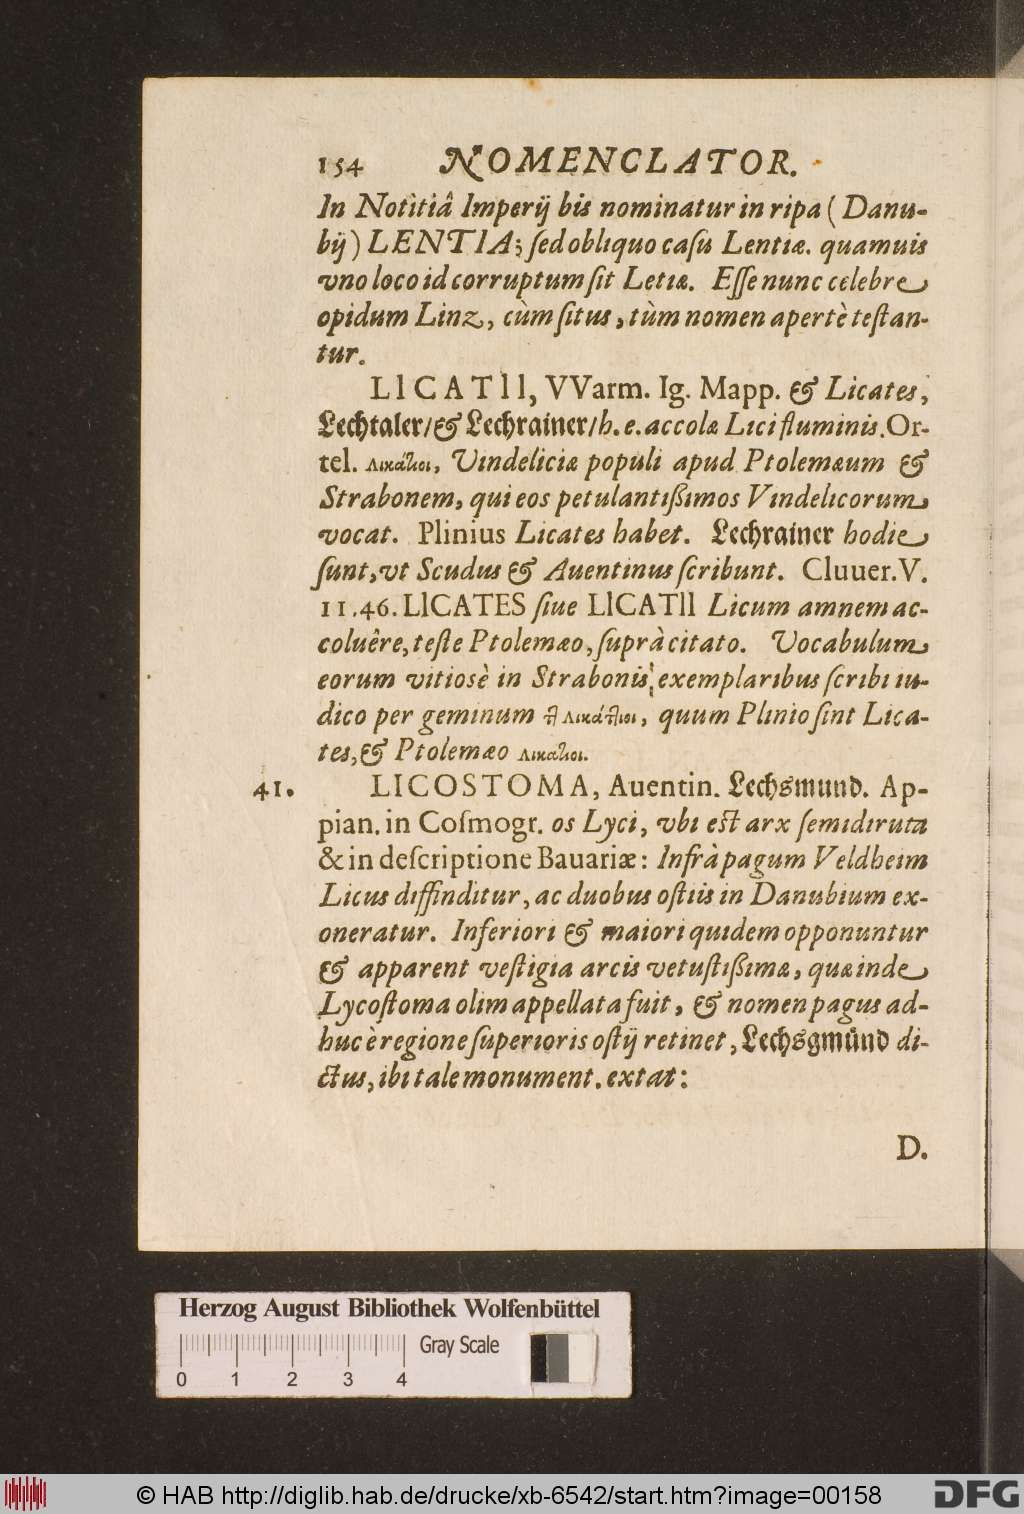 154 NOMENCLATOR.
In Notitiâ Imperij bis nominatur in ripa (Danu-
bij) LENTIA; ſed obliquo caſu Lentiæ. quamuis
vno loco id corruptum ſit Letiæ. Eſſe nunc celebre
opidum Linz, cùm ſitus, tùm nomen apertè teſtan-
tur.
LICATII, VVarm. Ig. Mapp. & Licates,
Lechtaler/ & Lechrainer/ h. e. accolæ Lici fluminis. Or-
tel. Λικάτιοι, Vindeliciæ populi apud Ptolemæum &
Strabonem, qui eos petulantißimos Vindelicorum
vocat. Plinius Licates habet. Lechrainer hodie
ſunt, vt Scudus & Auentinus ſcribunt. Cluuer. V.
11. 46. LICATES ſiue LICATII Licum amnem ac-
coluêre, teſte Ptolemæo, ſuprà citato. Vocabulum
eorum vitiosè in Strabonis exemplaribus ſcribi iu-
dico per geminum τῖ Λικάτιοι, quum Plinio ſint Lica-
tes, & Ptolemæo Λικάτιοι.
41. LICOSTOMA, Auentin. Lechsmund. Ap-
pian. in Coſmogr. os Lyci, vbi eſt arx ſemidiruta
& in deſcriptione Bauariæ: Infrà pagum Veldheim
Licus diffinditur, ac duobus oſtiis in Danubium ex-
oneratur. Inferiori & maiori quidem opponuntur
& apparent veſtigia arcis vetuſtißimæ, quæ inde
Lycoſtoma olim appellata fuit, & nomen pagus ad-
huc è regione ſuperioris oſtij retinet, Lechsgmünd di-
ctus, ibi tale monument. extat:
D.
Herzog August Bibliothek Wolfenbüttel
Gray Scale
0 1 2 3 4
© HAB http://diglib.hab.de/drucke/xb-6542/start.htm?image=00158
DFG